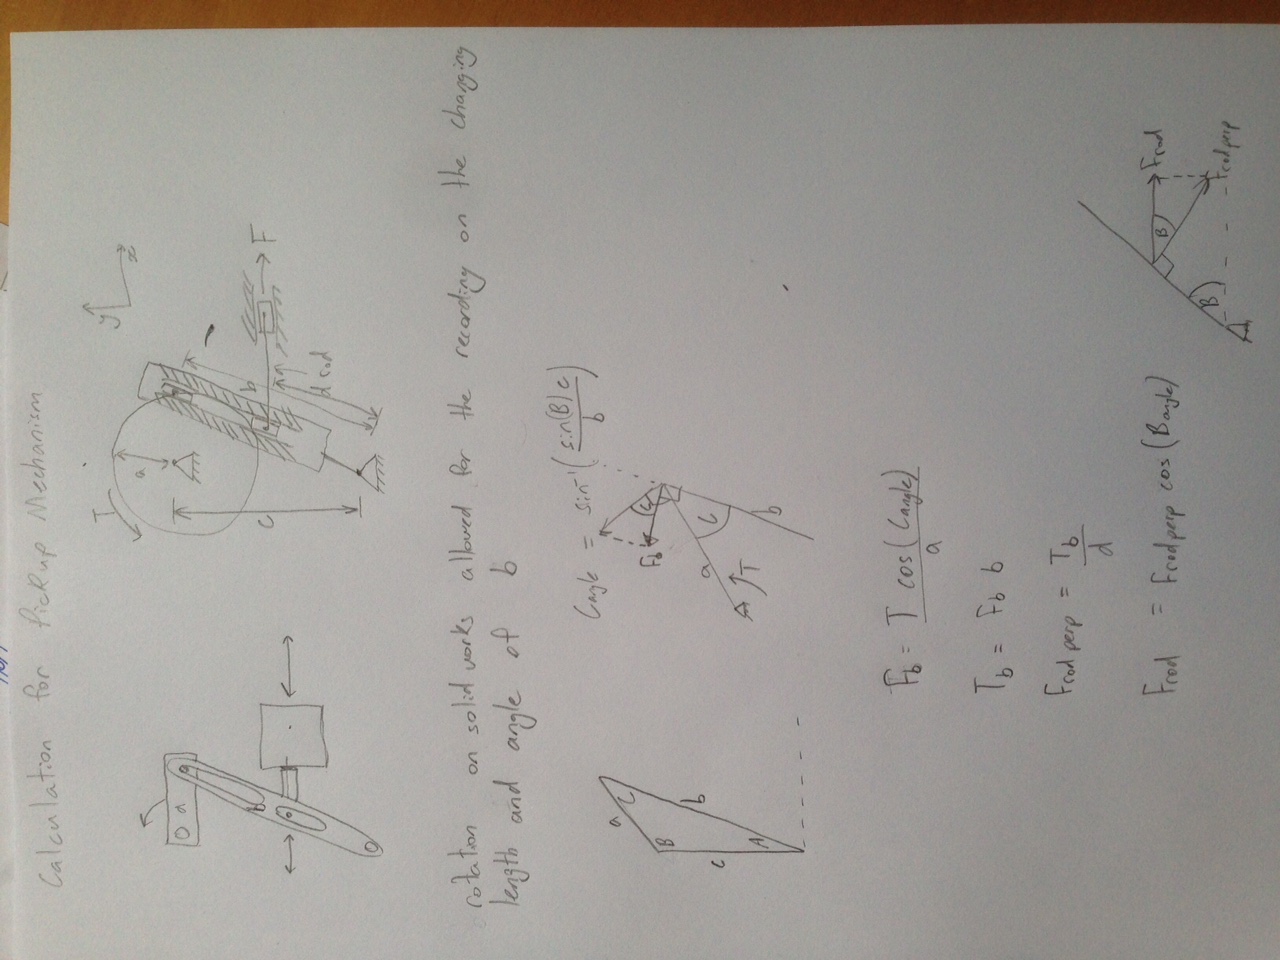 Calculation for Pickup Mechanism
T
y
x
a
O a
b
b
c
F
d rod
rotation on solid works allowed for the recording on the changing
length and angle of b
Cangle = sin⁻¹(sin(B) c / b)
a
C
B
c
b
A
Fb
C
a
C
T
b
Fb = T cos(Cangle) / a
Tb = Fb b
Frod perp = Tb / d
Frod = Frod perp cos(Bangle)
Frod
B
B
Frod perp